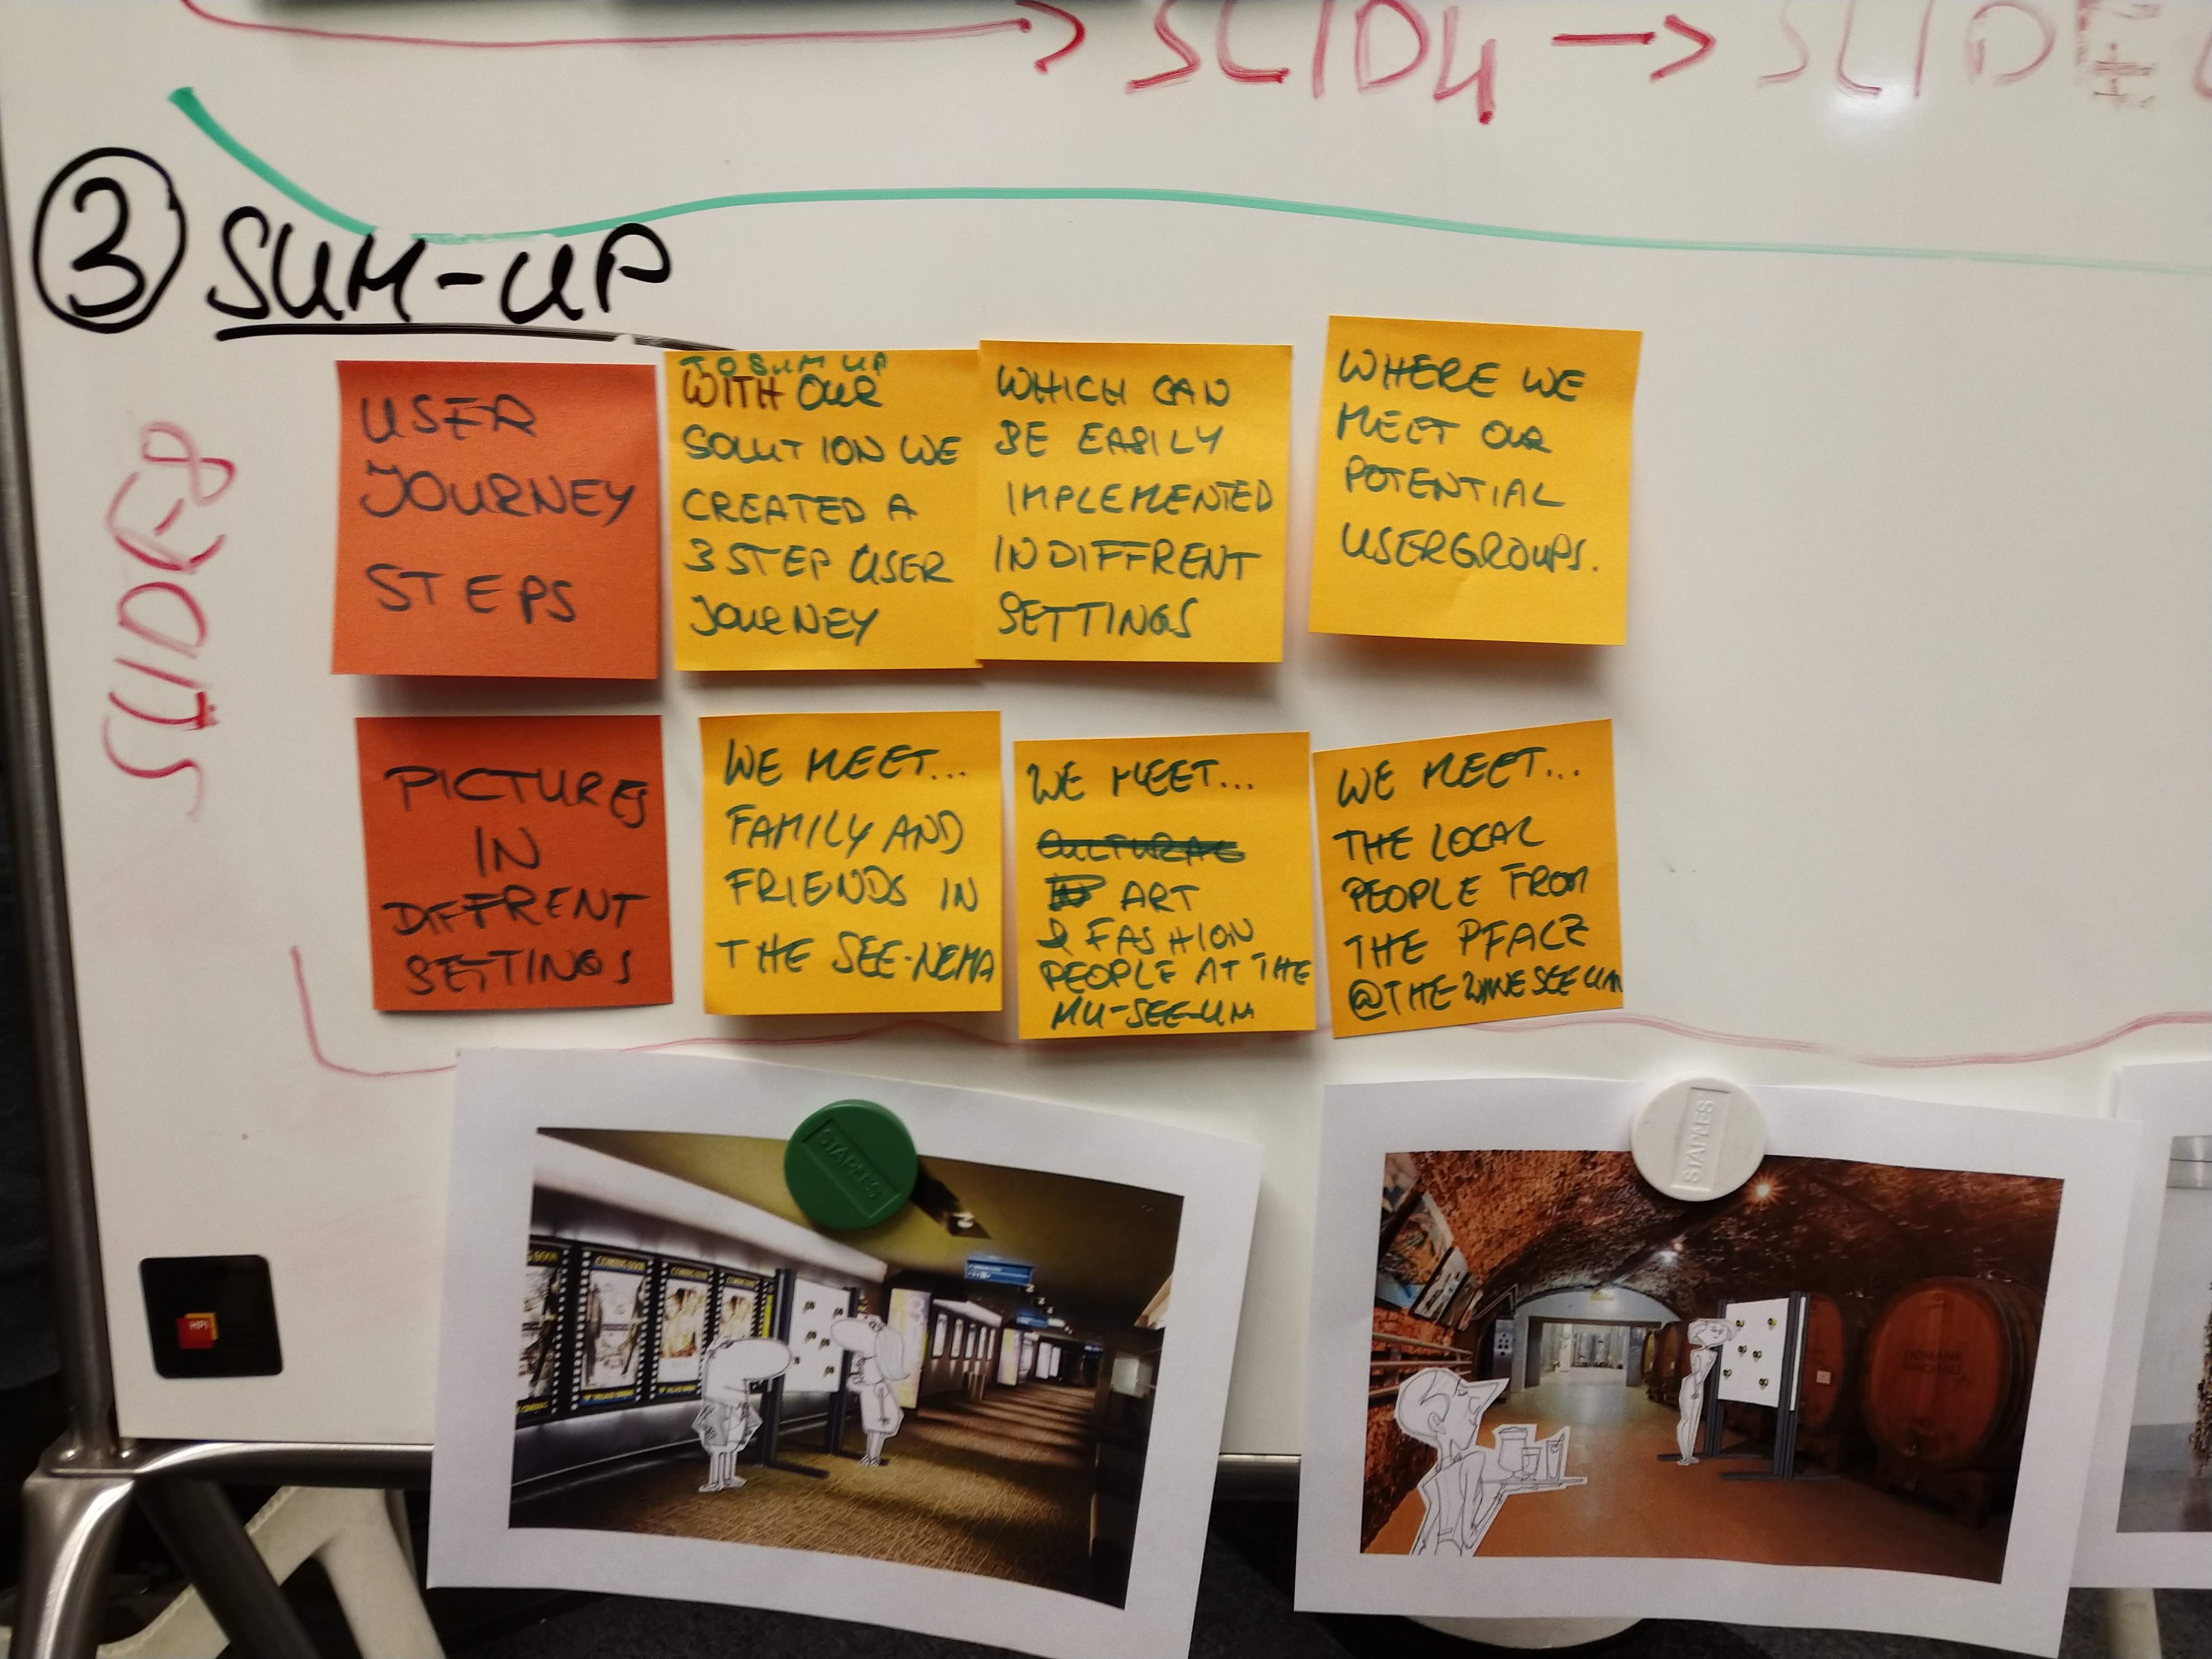 SLID4 → SLIDE
③ SUM-UP
SLIDR8
USER
JOURNEY
STEPS
TO SUM UP
WITH OUR
SOLUTION WE
CREATED A
3 STEP USER
JOURNEY
WHICH CAN
BE EASILY
IMPLEMENTED
IN DIFFRENT
SETTINGS
WHERE WE
MEET OUR
POTENTIAL
USERGROUPS.
PICTURES
IN
DIFFRENT
SETTINGS
WE MEET...
FAMILY AND
FRIENDS IN
THE SEE-NEMA
WE MEET...
CULTURAL
ART
& FASHION
PEOPLE AT THE
MU-SEE-UM
WE MEET...
THE LOCAL
PEOPLE FROM
THE PFALZ
@THE WINESEEUM
STAPLES
STAPLES
COMING SOON
COMING SOON
COMING SOON
HPI
DOMÄNE